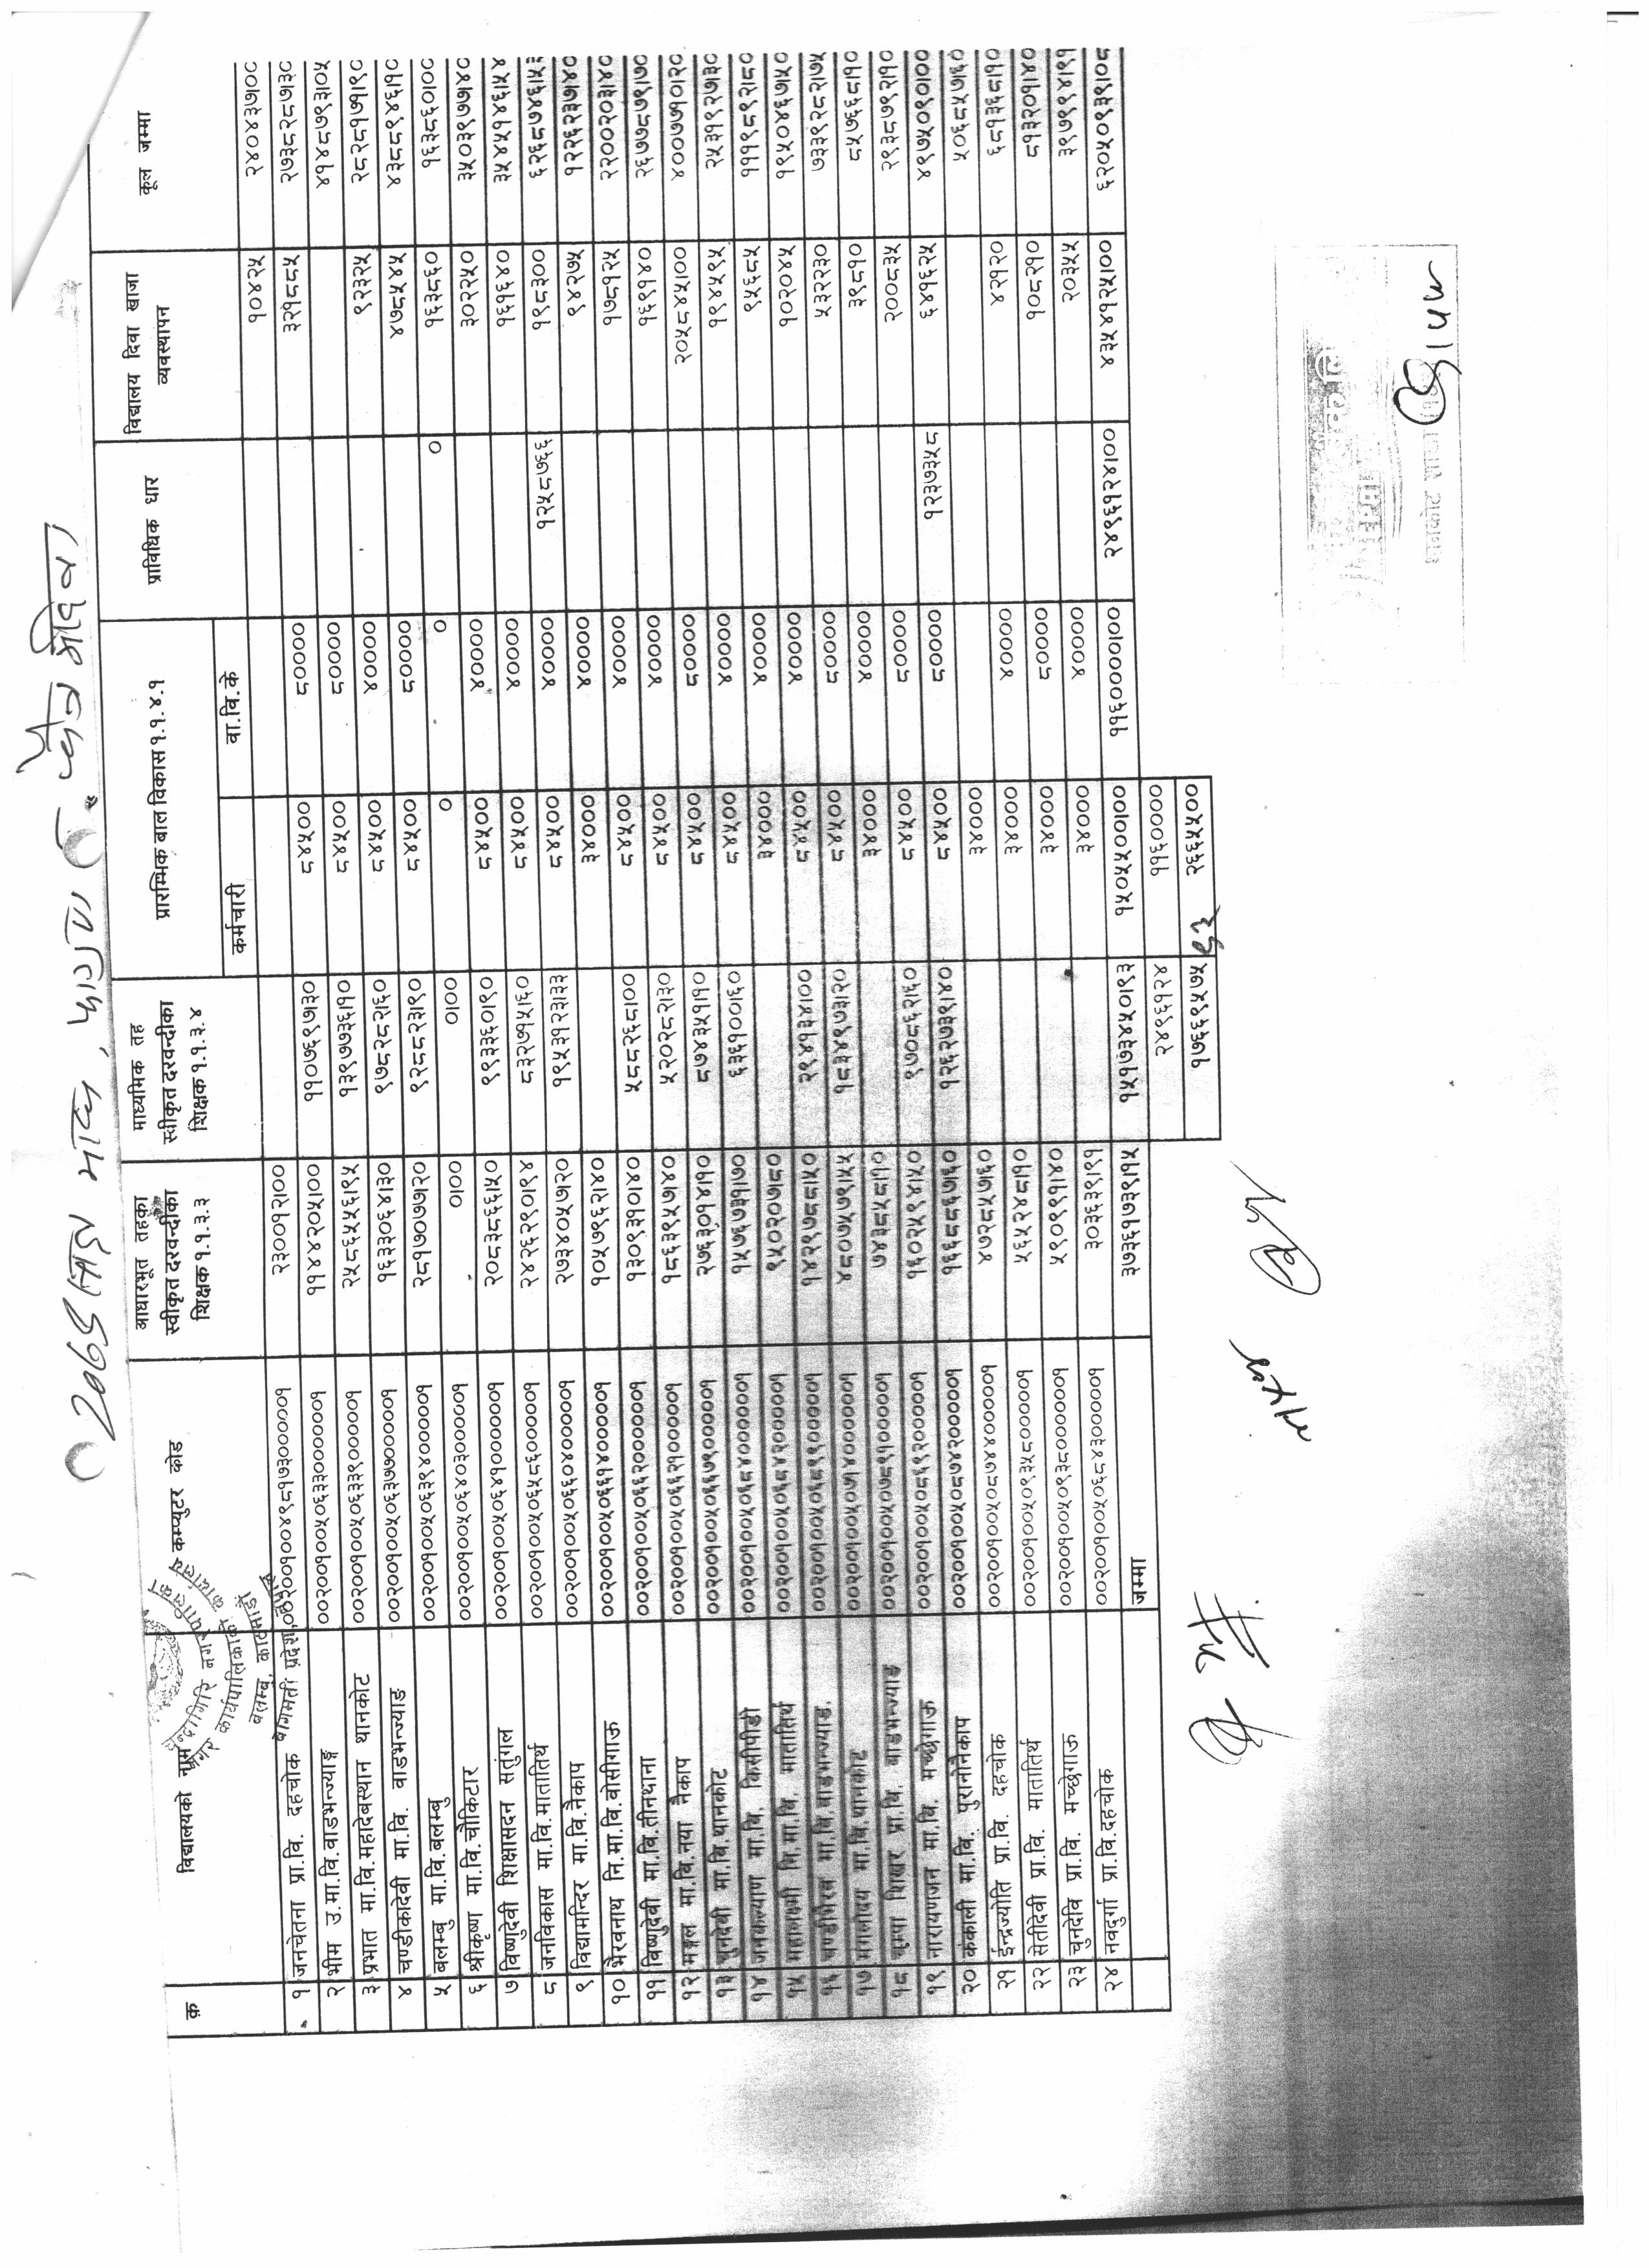 २०७९ साल माघ, फागुन र चैत्र महिना
चन्द्रागिरि नगरपालिका
नगर कार्यपालिकाको कार्यालय
बलम्बु, काठमाडौं
बागमती प्रदेश, नेपाल
क्र विद्यालयको नाम कम्प्युटर कोड आधारभूत तहका स्वीकृत दरवन्दीका शिक्षक १.१.३.३ माध्यमिक तह स्वीकृत दरवन्दीका शिक्षक १.१.३.४ प्रारम्भिक बाल विकास १.१.४.१ प्राविधिक धार विद्यालय दिवा खाजा व्यवस्थापन कूल जम्मा
कर्मचारी वा.वि.के
१ जनचेतना प्रा.वि. दहचोक ००२००१००४९८१७३०००००१ २३००१२।०० १०४२५ २४०४३७।००
२ भीम उ.मा.वि.वाडभन्ज्याङ्ग ००२००१००५०६३३००००००१ ११४४२०५।०० ११०७६९७।३० ८४५०० ८०००० ३२१८८५ २७३८२८७।३०
३ प्रभात मा.वि.महादेवस्थान थानकोट ००२००१००५०६३३९०००००१ २५८६५५६।९५ १३९७७३६।१० ८४५०० ८०००० ४१४८७९३।०५
४ चण्डीकादेवी मा.वि. वाडभन्ज्याङ ००२००१००५०६३७७००००००१ १६३३०६४।३० ९७८२८२।६० ८४५०० ४०००० ९२३२५ २८२८१७१।९०
५ बलम्बु मा.वि.बलम्बु ००२००१००५०६३९४००००००१ २८१७०७७।२० ९२८८२३।९० ८४५०० ८०००० ४७८५४५ ४३८८९४६।१०
६ श्रीकृष्ण मा.वि.चौकिटार ००२००१००५०६४०३००००००१ ०।०० ०।०० ० ० ० १६३८६० १६३८६०।००
७ विष्णुदेवी शिक्षासदन सतुंगल ००२००१००५०६४१००००००१ २०८३८६६।५० ९९३३६०।९० ८४५०० ४०००० ३०२२५० ३५०३९७७।४०
८ जनविकास मा.वि.मातातिर्थ ००२००१००५०६५८६००००००१ २४२६२९०।९४ ८३२७१५।६० ८४५०० ४०००० १६१६४० ३५४५१४६।५४
९ विद्यामन्दिर मा.वि.नैकाप ००२००१००५०६६०४००००००१ २७३४०५७।२० १९५३१२३।३३ ८४५०० ४०००० १२५८७६६ १९८३०० ६२६८७४६।५३
१० भैरवनाथ नि.मा.वि.वोसीगाऊ ००२००१००५०६६१४००००००१ १०५७९६२।४० ३४००० ४०००० ९४२७५ १२२६२३७।४०
११ विष्णुदेवी मा.वि.तीनथाना ००२००१००५०६६२०००००००१ १३०९३१०।४० ५८८२६८।०० ८४५०० ४०००० १७८१२५ २२००२०३।४०
१२ मङ्गल मा.वि.नया नैकाप ००२००१००५०६६२१००००००१ १८६३९५७।४० ५२०२८२।३० ८४५०० ४०००० १६९१४० २६७७८७९।७०
१३ चुनदेवी मा.वि.थानकोट ००२००१००५०६६७९००००००१ २७६३०१४।१० ८७४३५१।१० ८४५०० ८०००० २०५८४५।०० ४००७७१०।२०
१४ जनकल्याण मा.वि. किसीपीडी ००२००१००५०६८४०००००००१ १५७६७३१।७० ६३६१००।६० ८४५०० ४०००० १९४५९५ २५३१९२७।३०
१५ महालक्ष्मी नि.मा.वि. मातातिर्थ ००२००१००५०६८४२००००००१ ९५०२०७।८० ३४००० ४०००० ९५६८५ १११९८९२।८०
१६ चण्डीभैरव मा.वि.वाडभन्ज्याङ. ००२००१००५०६८९९००००००१ १४२९७८८।५० २९४१३४।०० ८४५०० ४०००० १०२०४५ १९५०४६७।५०
१७ मंगलोदय मा.वि.थानकोट ००२००१००५०७१४०००००००१ ४८०७५७९।५५ १८३४९७३।२० ८४५०० ८०००० ५३२२३० ७३३९२८२।७५
१८ चम्पा शिखर प्रा.वि. बाडभन्ज्याङ ००२००१००५०७८९१००००००१ ७४३८५८।१० ३४००० ४०००० ३९८१० ८५७६६८।१०
१९ नारायणजन मा.वि. मच्छेगाऊ ००२००१००५०८६९२००००००१ १६०२५९४।५० ९७०८६२।६० ८४५०० ८०००० २००८३५ २९३८७९२।१०
२० कंकाली मा.वि. पुरानोनैकाप ००२००१००५०८७४२०००००१ १६६८८६७।६० १२६२७३९।४० ८४५०० ८०००० १२३७३५८ ६४१६२५ ४९७५०९०।००
२१ ईन्द्रज्योति प्रा.वि. दहचोक ००२००१००५०८७४४००००००१ ४७२८५७।६० ३४००० ५०६८५७।६०
२२ सेतीदेवी प्रा.वि. मातातिर्थ ००२००१००५०९३५८०००००१ ५६५२४८।१० ३४००० ४०००० ४२१२० ६८१३६८।१०
२३ चुनदेवि प्रा.वि. मच्छेगाऊ ००२००१००५०९३८००००००१ ५९०९९१।४० ३४००० ८०००० १०८२१० ८१३२०१।४०
२४ नवदुर्गा प्रा.वि.दहचोक ००२००१००५०६८४३०००००१ ३०३६३९।९१ ३४००० ४०००० २०३५५ ३९७९९४।९१
जम्मा ३७३६१७३९।१५ १५१७३४५०।९३ १५०५५००।०० ११६००००।०० २४९६१२४।०० ४३५४१२५।०० ६२०५०९३९।०८
२४९६१२४ ११६००००
१७६६९५७५ ।९३ २६६५५००